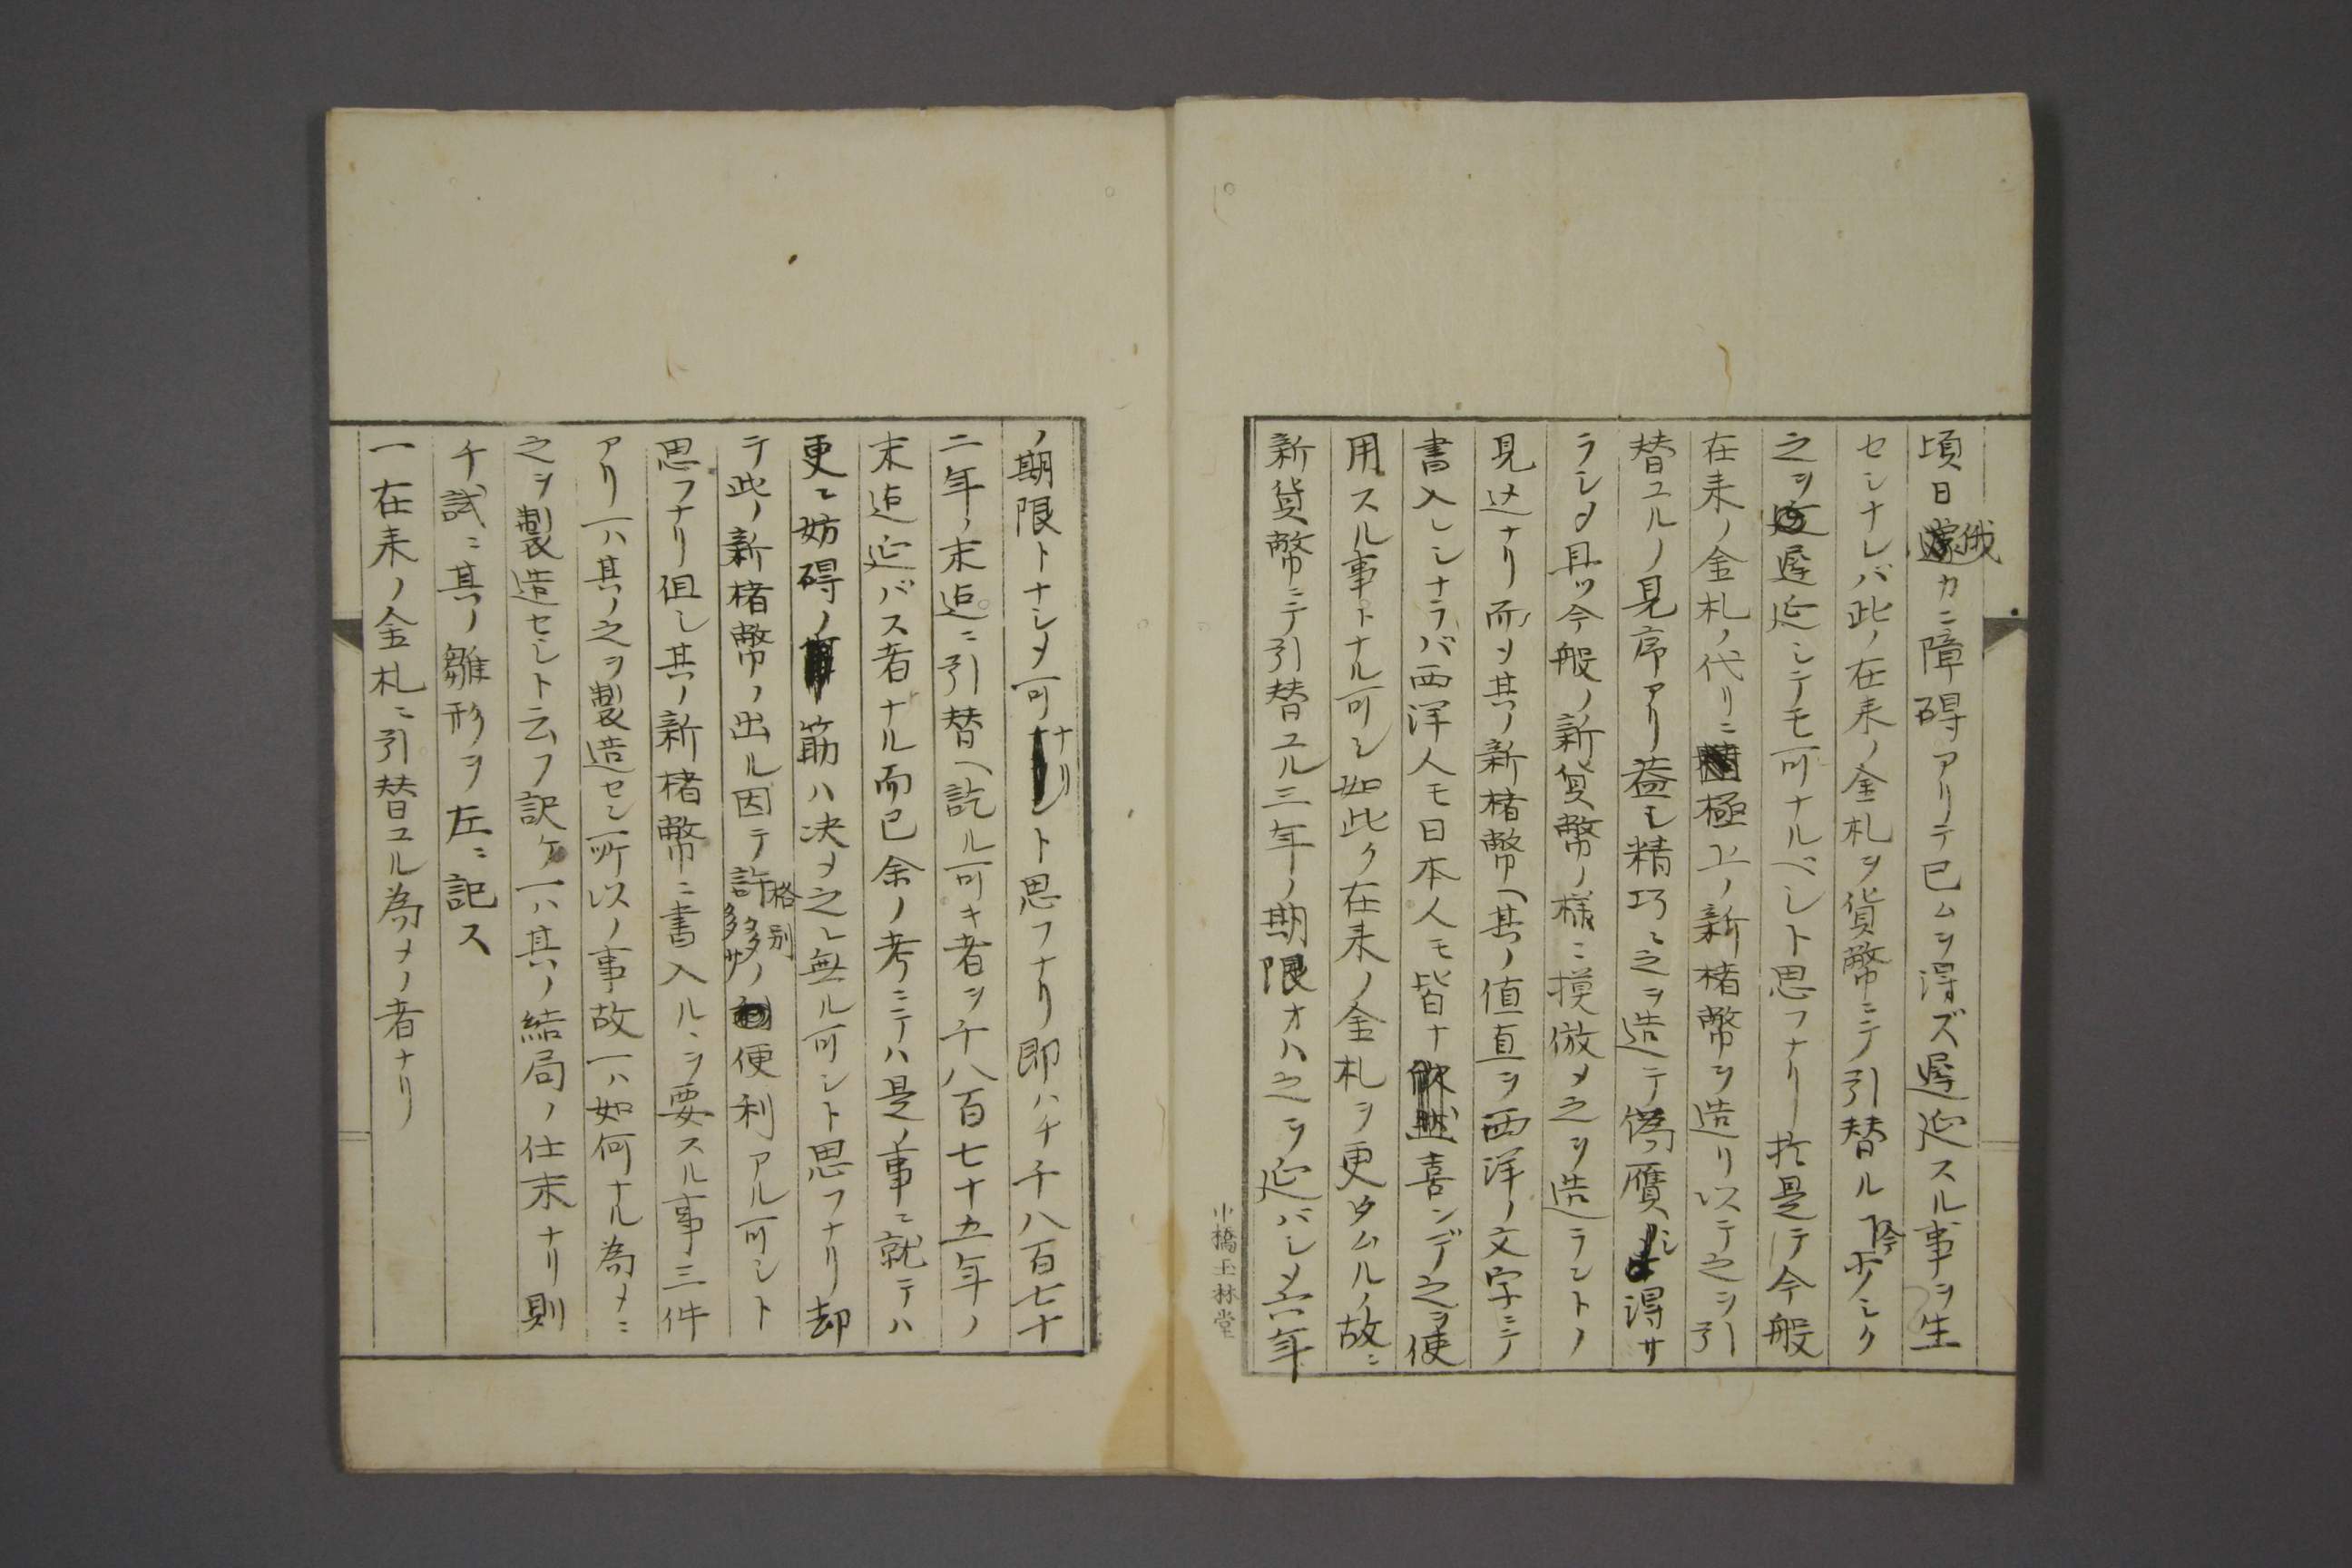 頃日俄カニ障碍アリテ已ムヲ得ズ遅延スル事ヲ生
セシナレバ此ノ在来ノ金札ヲ貨幣ニテ引替ル 少シク
之ヲ遅延シテモ可ナルベシト思フナリ於是テ今般
在来ノ金札ノ代リニ極上ノ新楮幣ヲ造リ以テ之ヲ引
替ユルノ見序アリ益モ精巧ニ之ヲ造テ偽贋シ得サ
ラシメ且ツ今般ノ新貨幣ノ様ニ摸倣メ之ヲ造ラントノ
見込ナリ而メ其ノ新楮幣ヘ其ノ値直ヲ西洋ノ文字ニテ
書入レシナラバ西洋人モ日本人モ皆ナ喜ンデ之ヲ使
用スル事トナル可シ如此ク在来ノ金札ヲ更タムルノ故ニ
新貨幣ニテ引替ユル三年ノ期限オハ之ヲ延バシメ六年
小橋玉林堂
ノ期限トナシメ可ナリト思フナリ即ハチ千八百七十
二年ノ末迠ニ引替ヘ訖ル可キ者ヲ千八百七十五年ノ
末迠延バス者ナル而已余ノ考ニテハ是ノ事ニ就テハ
更ニ妨碍ノ筋ハ决メ之レ無ル可シト思フナリ却
テ此ノ新楮幣ノ出ル因テ格別ノ便利アル可シト
思フナリ但シ其ノ新楮幣ニ書入ルヽヲ要スル事三件
アリ一ハ其ノ之ヲ製造セシ所以ノ事故一ハ如何ナル為メニ
之ヲ製造セシト云フ訳ケ一ハ其ノ結局ノ仕末ナリ則
チ試ニ其ノ雛形ヲ左ニ記ス
一在来ノ金札ニ引替ユル為メノ者ナリ